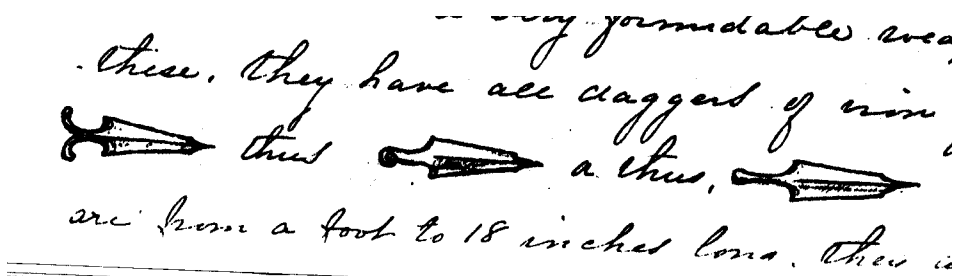 a very formidable wea
these. they have all daggers of iron
thus a thus,
are from a foot to 18 inches long. they